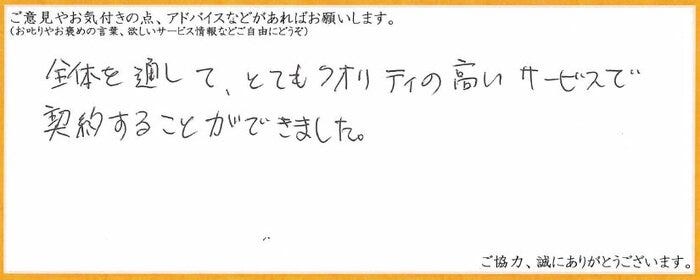 ご意見やお気付きの点、アドバイスなどがあればお願いします。
(お叱りやお褒めの言葉、欲しいサービス情報などご自由にどうぞ)
全体を通して、とてもクオリティの高いサービスで
契約することができました。
ご協力、誠にありがとうございます。